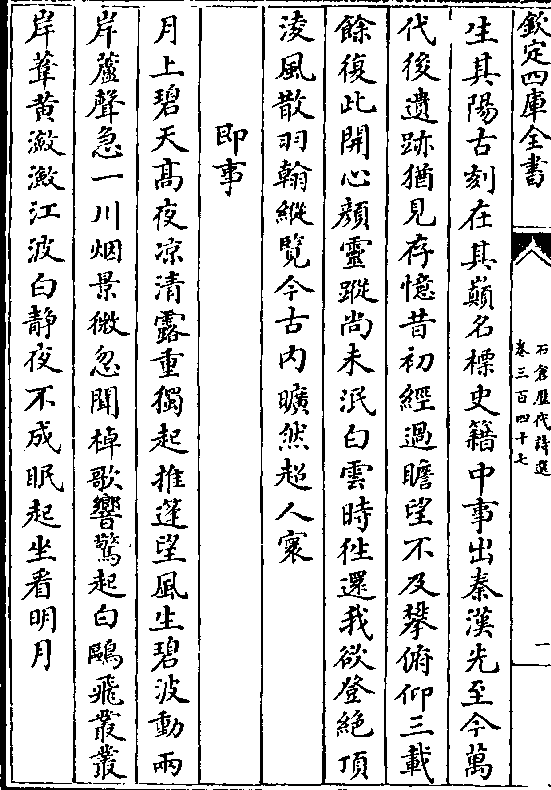 欽定四庫全書
石倉歷代詩選
卷三百四十七
二
生其陽古刻在其巔名標史籍中事出秦漢先至今萬
代後遺跡猶見存憶昔初經過瞻望不及攀俯仰三載
餘復此開心顏靈蹤尚未泯白雲時徃還我欲登絶頂
淩風散羽翰縱覽今古内曠然超人寰
即事
月上碧天髙夜凉清露重獨起推篷望風生碧波動兩
岸蘆聲急一川烟景微忽聞棹歌響驚起白鷗飛叢叢
岸葦黄潋潋江波白静夜不成眠起坐看明月